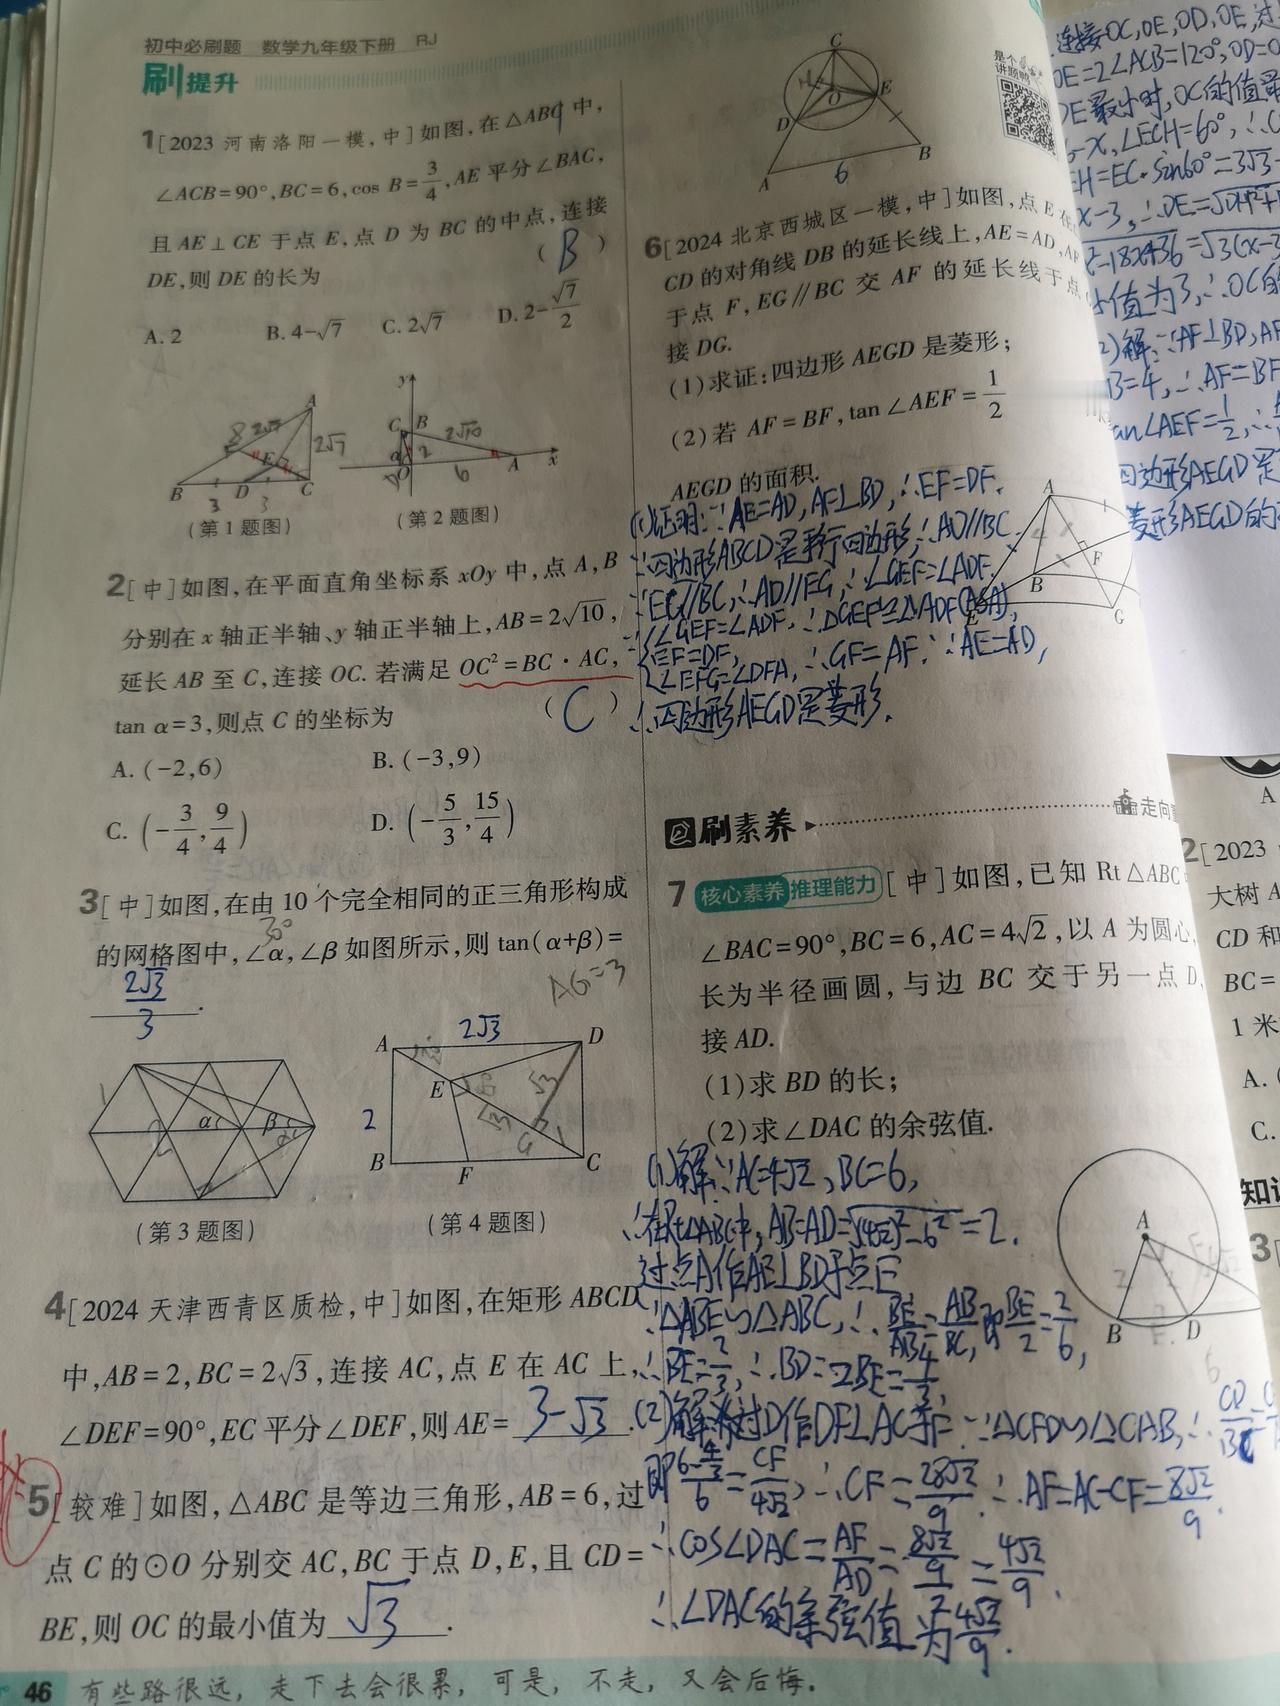 初中必刷题 数学九年级下册 RJ
刷提升
1[2023 河南洛阳一模,中]如图,在△ABC 中,
∠ACB=90°,BC=6,cos B=3/4,AE 平分∠BAC,
且 AE⊥CE 于点 E,点 D 为 BC 的中点,连接
DE,则 DE 的长为 ( B )
A. 2 B. 4-√7 C. 2√7 D. 2-√7/2
A
8
2√7
2√7
E
B 3 D 3 C
(第 1 题图)
y
C B 2√10
α 2
O 6 A x
(第 2 题图)
2[中]如图,在平面直角坐标系 xOy 中,点 A,B
分别在 x 轴正半轴、y 轴正半轴上,AB=2√10,
延长 AB 至 C,连接 OC. 若满足 OC²=BC·AC,
tan α=3,则点 C 的坐标为 ( C )
A. (-2,6) B. (-3,9)
C. (-3/4,9/4) D. (-5/3,15/4)
3[中]如图,在由 10 个完全相同的正三角形构成
30°
的网格图中,∠α,∠β如图所示,则 tan(α+β)=
2√3/3 .
AG=3
α β
(第 3 题图)
A 2√3 D
E
2
√3
G
B F C
(第 4 题图)
4[2024 天津西青区质检,中]如图,在矩形 ABCD
中,AB=2,BC=2√3,连接 AC,点 E 在 AC 上,
∠DEF=90°,EC 平分∠DEF,则 AE= 3-√3 .
5[较难]如图,△ABC 是等边三角形,AB=6,过
点 C 的⊙O 分别交 AC,BC 于点 D,E,且 CD=
BE,则 OC 的最小值为 √3 .
46 有些路很远,走下去会很累,可是,不走,又会后悔。
C
O E
D
A 6 B
是个
讲题
6[2024 北京西城区一模,中]如图,点 E 在
CD 的对角线 DB 的延长线上,AE=AD,AF
于点 F,EG∥BC 交 AF 的延长线于点
接 DG.
(1)求证:四边形 AEGD 是菱形;
(2)若 AF=BF,tan∠AEF=1/2
AEGD 的面积.
(1)证明:∵AE=AD,AF⊥BD,∴EF=DF.
∵四边形ABCD是平行四边形,∴AD//BC
∵EG//BC,∴AD//EG,∴∠GEF=∠ADF.
∠GEF=∠ADF,∴△GEF≌△ADF(ASA),
EF=DF,
∠EFG=∠DFA,∴GF=AF.∵AE=AD,
∴四边形AEGD是菱形.
A
F
B
E G
刷素养 走向
7 核心素养 推理能力 [中]如图,已知 Rt△ABC
∠BAC=90°,BC=6,AC=4√2,以 A 为圆心,
长为半径画圆,与边 BC 交于另一点 D,
接 AD.
(1)求 BD 的长;
(2)求∠DAC 的余弦值.
(1)解:∵AC=4√2,BC=6,
∴在Rt△ABC中,AB=AD=√(4√2)²-6²=2.
过点A作AE⊥BD于点E
∵△ABE∽△ABC,∴BE/AB=AB/BC,即BE/2=2/6,
∴BE=2/3,∴BD=2BE=4/3.
(2)解:过D作DF⊥AC于F ∵△CFD∽△CAB,∴
即(6-4/3)/6=CF/4√2,∴CF=28√2/9 ∴AF=AC-CF=8√2/9.
∴cos∠DAC=AF/AD=(8√2/9)/2=4√2/9.
∴∠DAC的余弦值为4√2/9.
A
2 2
B E D
6
连接OC,OE,OD,DE,过
OE=2∠ACB=120°,OD=O
DE最小时,OC的值最
-x,∠ECH=60°,∴C
EH=EC·sin60°=3√3-
x-3,∴DE=√DH²+
-18x+36=√3(x-3
小值为3,∴OC的
2)解:∵AF⊥BD,AF
B=4,∴AF=BF
tan∠AEF=1/2,∴
四边形AEGD是
菱形AEGD的
A
2[2023
大树 A
CD 和
BC=
1 米
A. (
C.
知识
3[